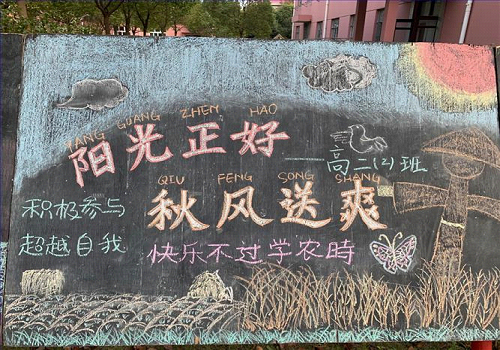 YANG GUANG ZHEN HAO
阳光正好
——高二(2)班
QIU FENG SONG SHANG
秋风送爽
积极参与
超越自我
快乐不过学农時